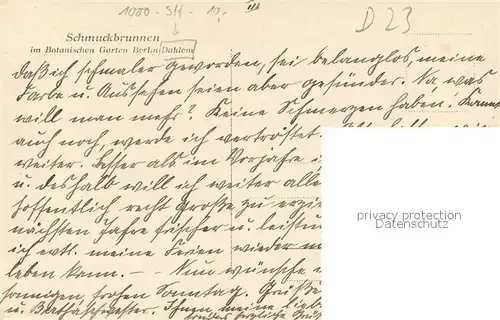 1000 - SH - 10,-
D 23
Schmuckbrunnen
im Botanischen Garten Berlin-Dahlem
daß ich schmaler geworden, sei belanglos, meine
Farbe u. Aussehen seien aber gesünder. Na was
will man mehr? Keine Schmerzen haben. Kann
auch noch, werde ich vertröstet.
weiter. Besser als im Vorjahre
u. deshalb will ich weiter alle
hoffentlich recht große zu erzie
nächsten Jahre frischer u. leistun
ich evtl. meine Ferien wieder
leben kann. – – Nun wünsche
sonnigen, frohen Sonntag. Grüße
u. Ihnen, meine liebe
privacy protection
Datenschutz